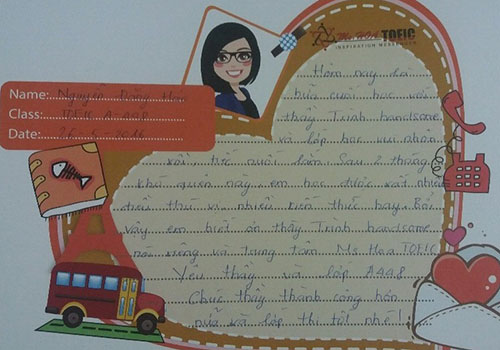 Ms HOA TOEIC
INSPIRATION
Name: Nguyễn Đăng
Class: TOEIC A 448
Date: 26-5-2016
Hôm nay là
buổi cuối học với
thầy Trình handsome
và lớp học vui nhộn
Sau 2 tháng
khá quên này, em học được rất nhiều
điều thú vị, nhiều kiến thức hay. Bởi
vậy em biết ơn thầy Trình handsome
nói riêng và trung tâm Ms Hoa TOEIC
Yêu thầy và lớp A448
Chúc thầy thành công hơn
nữa và lớp thi tốt nhé!